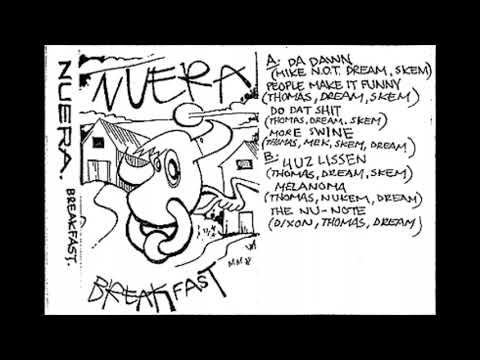 NUERA. BREAKFAST.
NUERA
BREAKFAST
A: DA DAWN
(MIKE N.O.T. DREAM, SKEM)
PEOPLE MAKE IT FUNNY
(THOMAS, DREAM, SKEM)
DO DAT SHIT
(THOMAS, DREAM. SKEM)
MORE SWINE
(THOMAS, MEK, SKEM, DREAM)
B: 4UZ LISSEN
(THOMAS, DREAM, SKEM)
MELANOMA
(THOMAS, NUKEM, DREAM)
THE NU-NOTE
(DIXON, THOMAS, DREAM)